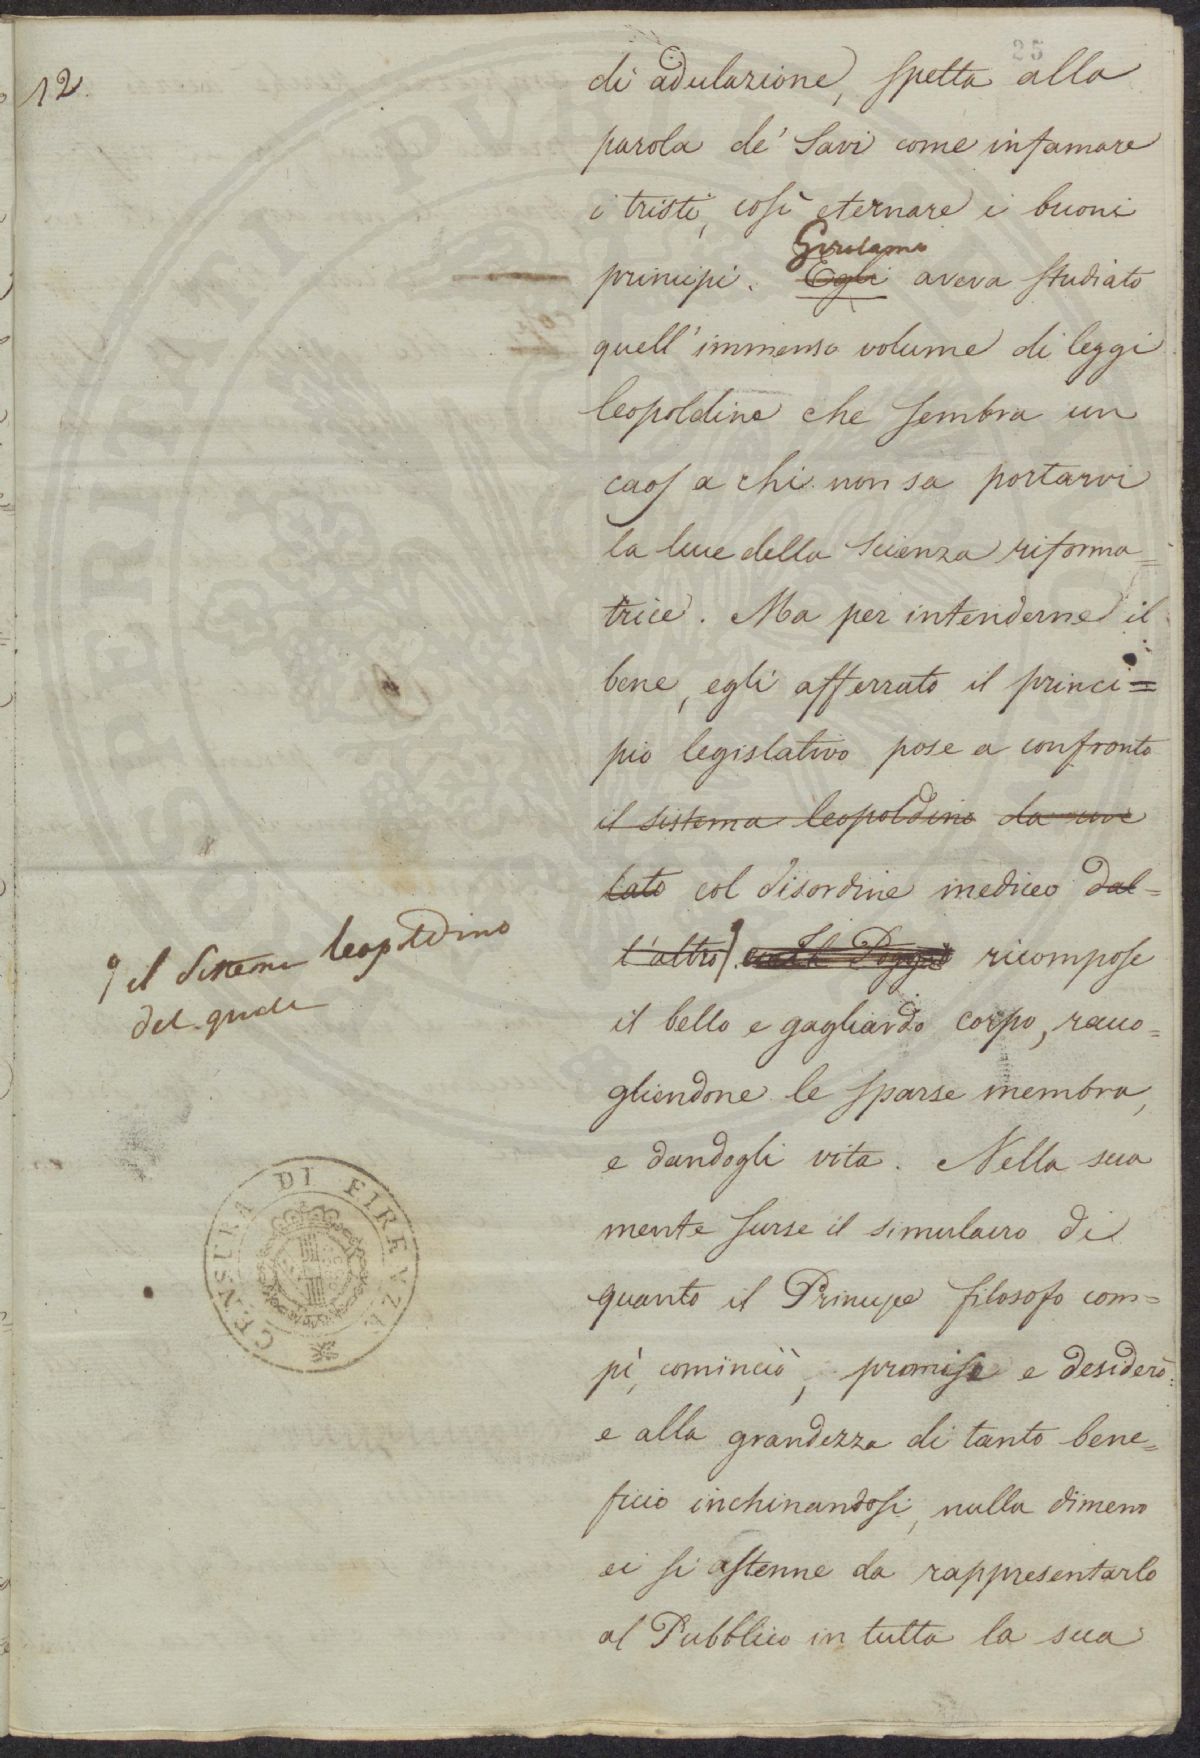 12.
25
di adulazione, spetta alla
parola de' Savi come infamare
i tristi, così eternare i buoni
Girolamo
principi. Egli aveva studiato
quell'immenso volume di leggi
leopoldine che sembra un
caos a chi non sa portarvi
la luce della scienza riforma=
trice. Ma per intenderne il
bene, egli afferrato il princi=
pio legislativo pose a confronto
il sistema leopoldino da un
lato col disordine mediceo dal=
l'altro Il Poggi ricompose
il sistema leopoldino
del quale
il bello e gagliardo corpo, racco=
gliendone le sparse membra,
e dandogli vita. Nella sua
mente surse il simulacro di
quanto il Principe filosofo com=
pì, cominciò, promise e desiderò
e alla grandezza di tanto bene=
ficio inchinandosi, nulla dimeno
ei si astenne da rappresentarlo
al Pubblico in tutta la sua
CENSURA DI FIRENZE